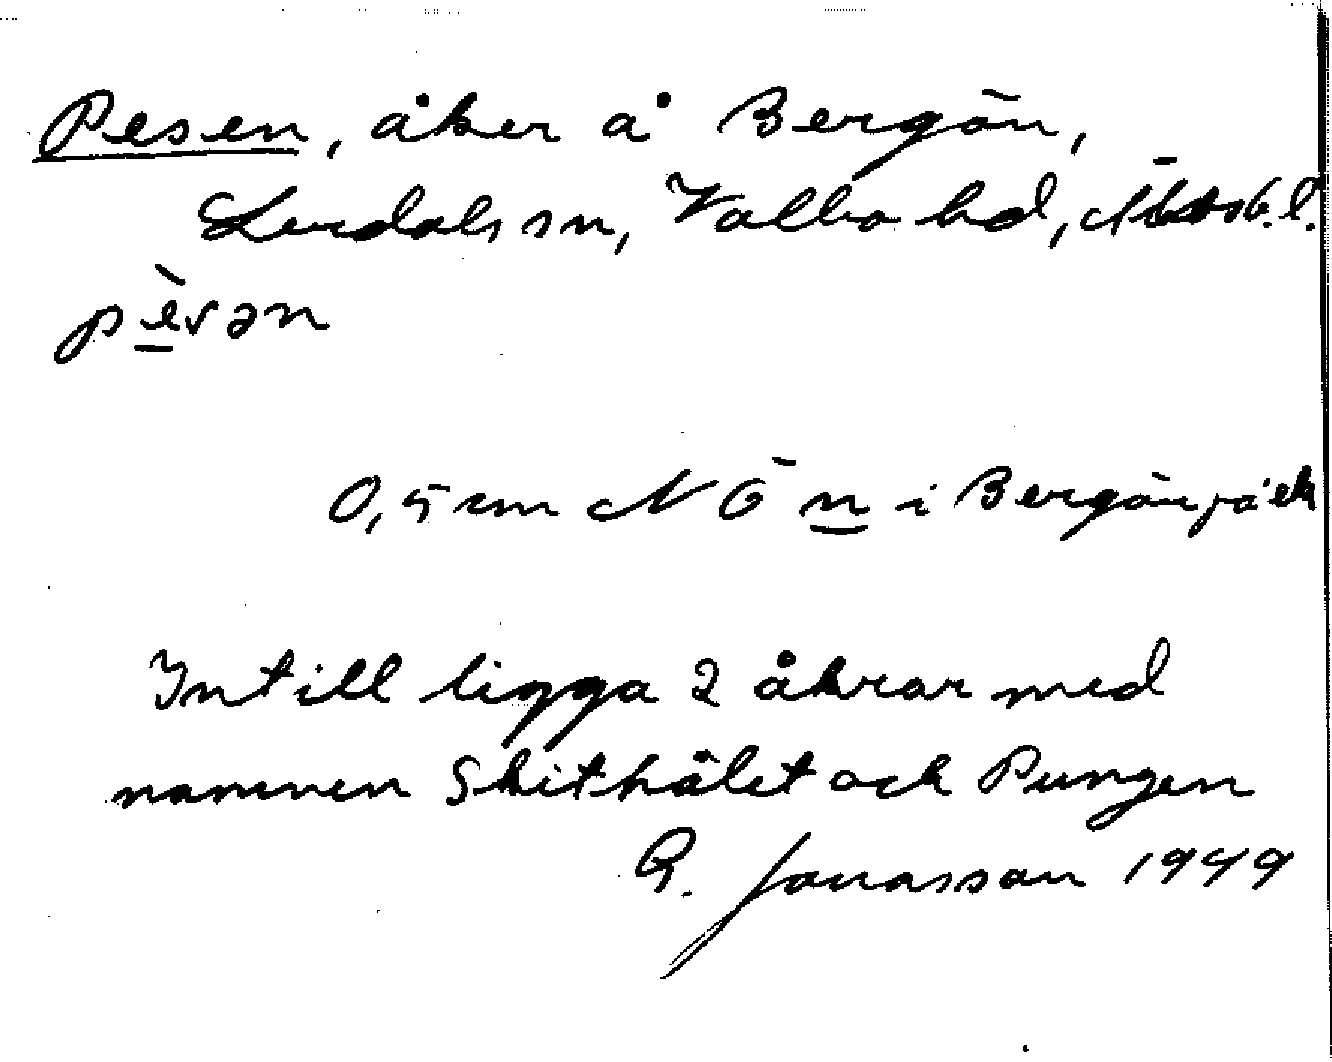 Pesen, åker å Bergön,
Lerdals sn, Valbo hd, Älvsb.l.
pèsən
0,5 cm N Ö n i Bergön på ek
Intill ligga 2 åkrar med
namnen Skithålet och Pungen
G. Jonasson 1949